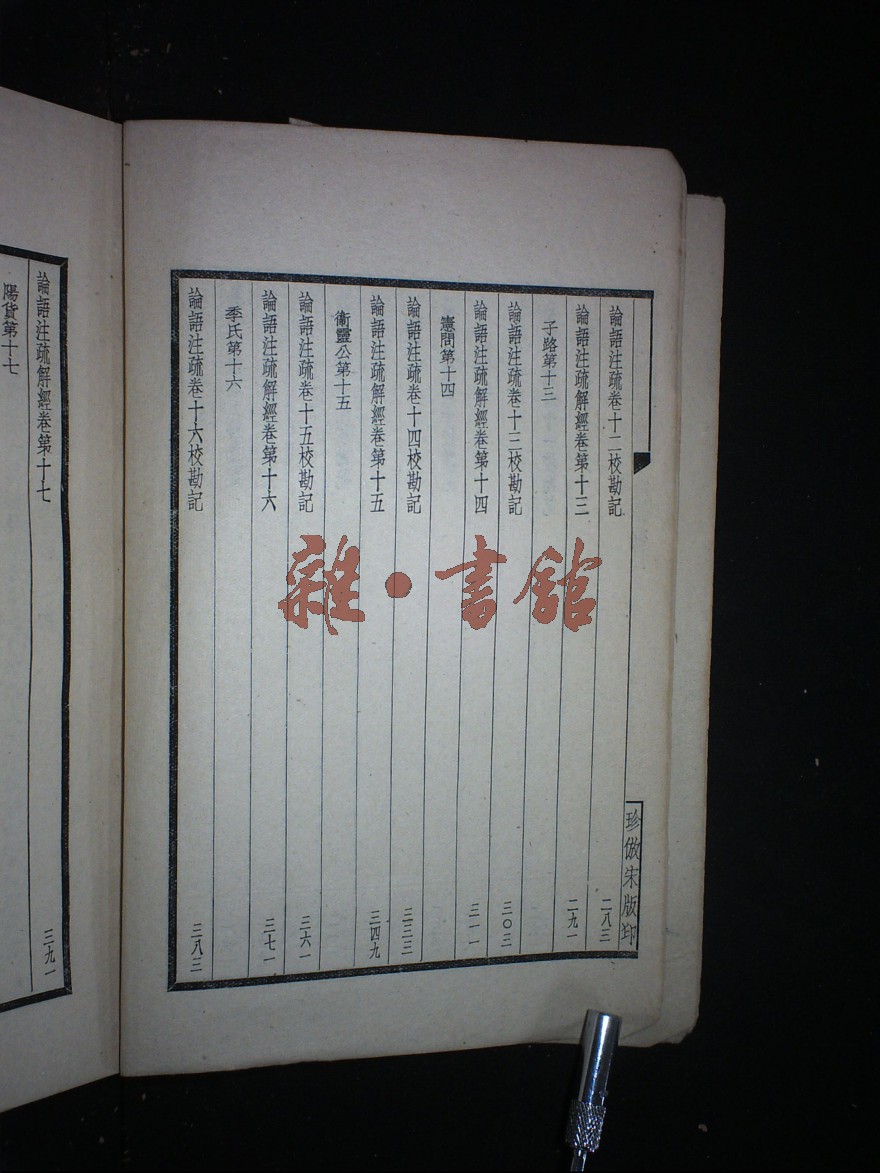 論語注疏卷十二校勘記 二八三
論語注疏解經卷第十三 二九一
子路第十三
論語注疏卷十三校勘記 三〇三
論語注疏解經卷第十四 三一一
憲問第十四
論語注疏卷十四校勘記 三三三
論語注疏解經卷第十五 三四九
衞靈公第十五
論語注疏卷十五校勘記 三六一
論語注疏解經卷第十六 三七一
季氏第十六
論語注疏卷十六校勘記 三八三
珍倣宋版印
論語注疏解經卷第十七 三九一
陽貨第十七
雜·書館